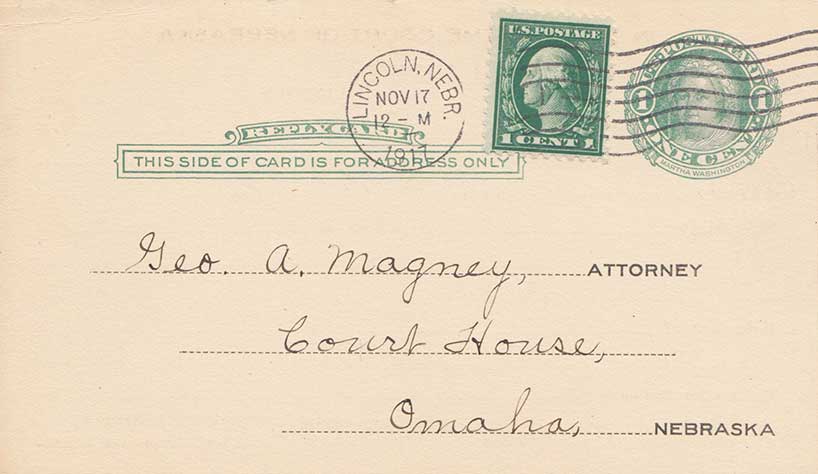 U.S.POSTAGE
1 CENT 1
U.S. POSTAL CARD
1 1
ONE CENT
MARTHA WASHINGTON
LINCOLN, NEBR.
NOV 17
12 - M
1917
REPLY CARD
THIS SIDE OF CARD IS FOR ADDRESS ONLY
Geo. A. Magney, ATTORNEY
Court House,
Omaha, NEBRASKA